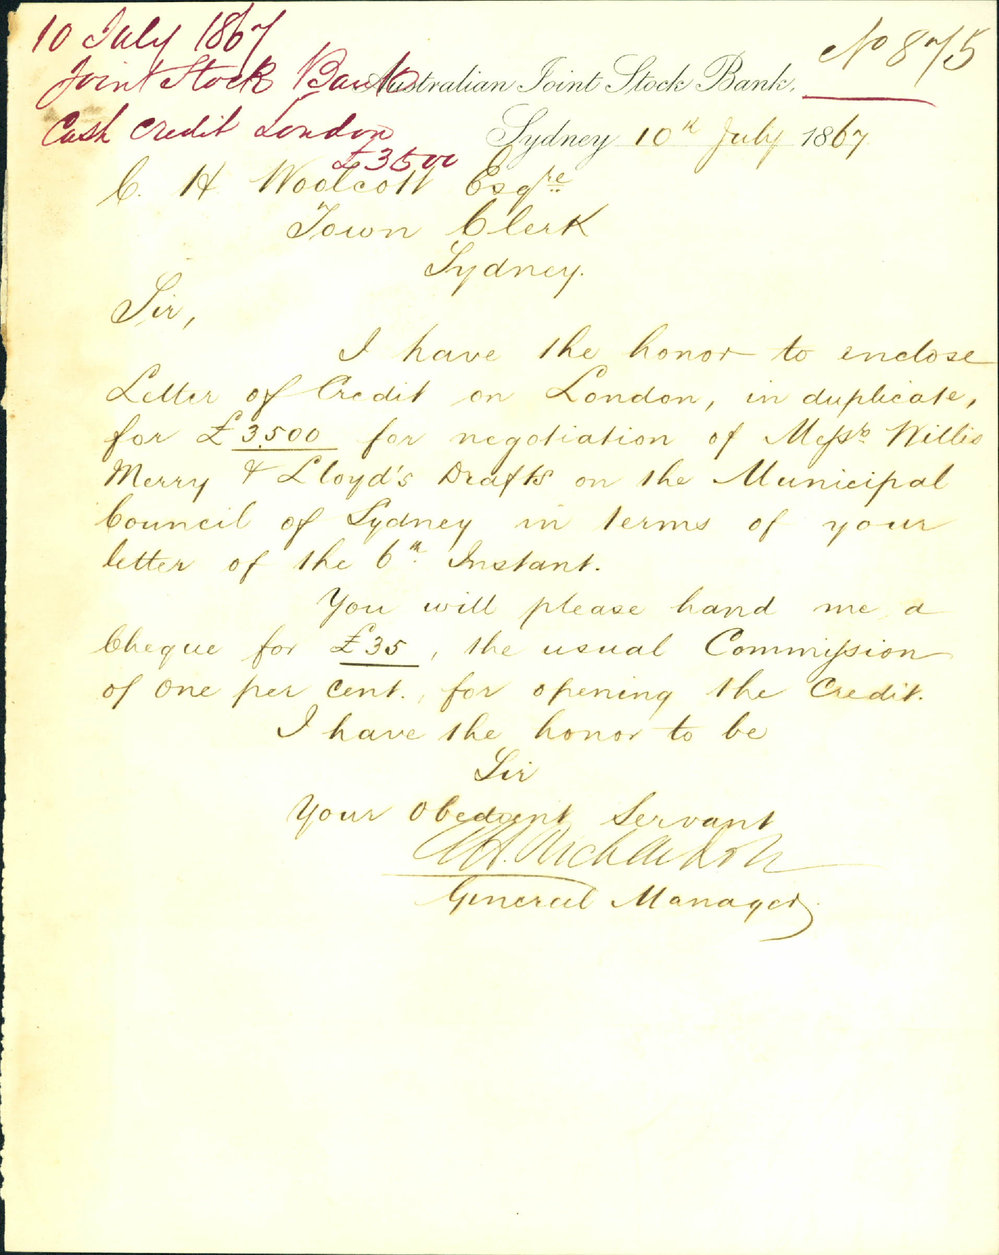 10 July 1867
Joint Stock Bank
Cash Credit London
£3500
No 875
Australian Joint Stock Bank,
Sydney 10th July 1867
C. H. Woolcott Esqre
Town Clerk
Sydney.
Sir,
I have the honor to enclose
Letter of Credit on London, in duplicate,
for £3,500 for negotiation of Messrs Willis
Merry & Lloyd's Drafts on the Municipal
Council of Sydney in terms of your
letter of the 6th Instant.
You will please hand me a
Cheque for £35, the usual Commission
of one per cent., for opening the Credit.
I have the honor to be
Sir
Your Obedient Servant
A.H. Richardson
General Manager